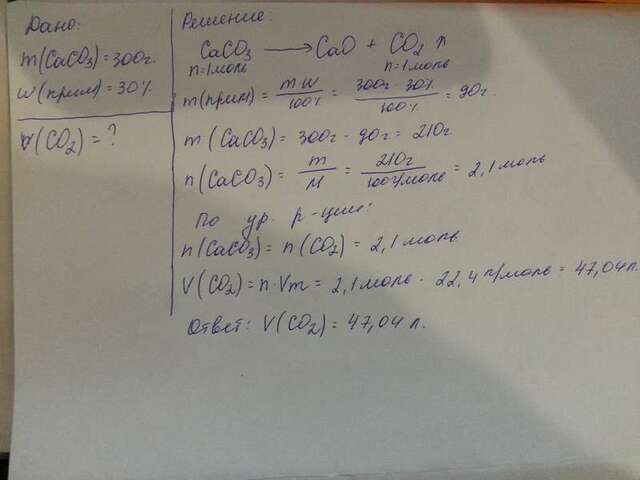 Дано:
m(CaCO₃) = 300г.
w(прим) = 30%
V(CO₂) = ?
Решение:
CaCO₃ ⟶ CaO + CO₂
n=1моль n=1моль
m(прим) = m w / 100% = 300г · 30% / 100% = 90г.
m (CaCO₃) = 300г - 90г = 210г
n(CaCO₃) = m / M = 210г / 100г/моль = 2,1 моль
По ур. р-ции:
n(CaCO₃) = n(CO₂) = 2,1 моль.
V(CO₂) = n · Vm = 2,1 моль · 22,4 л/моль = 47,04л.
Ответ: V(CO₂) = 47,04 л.